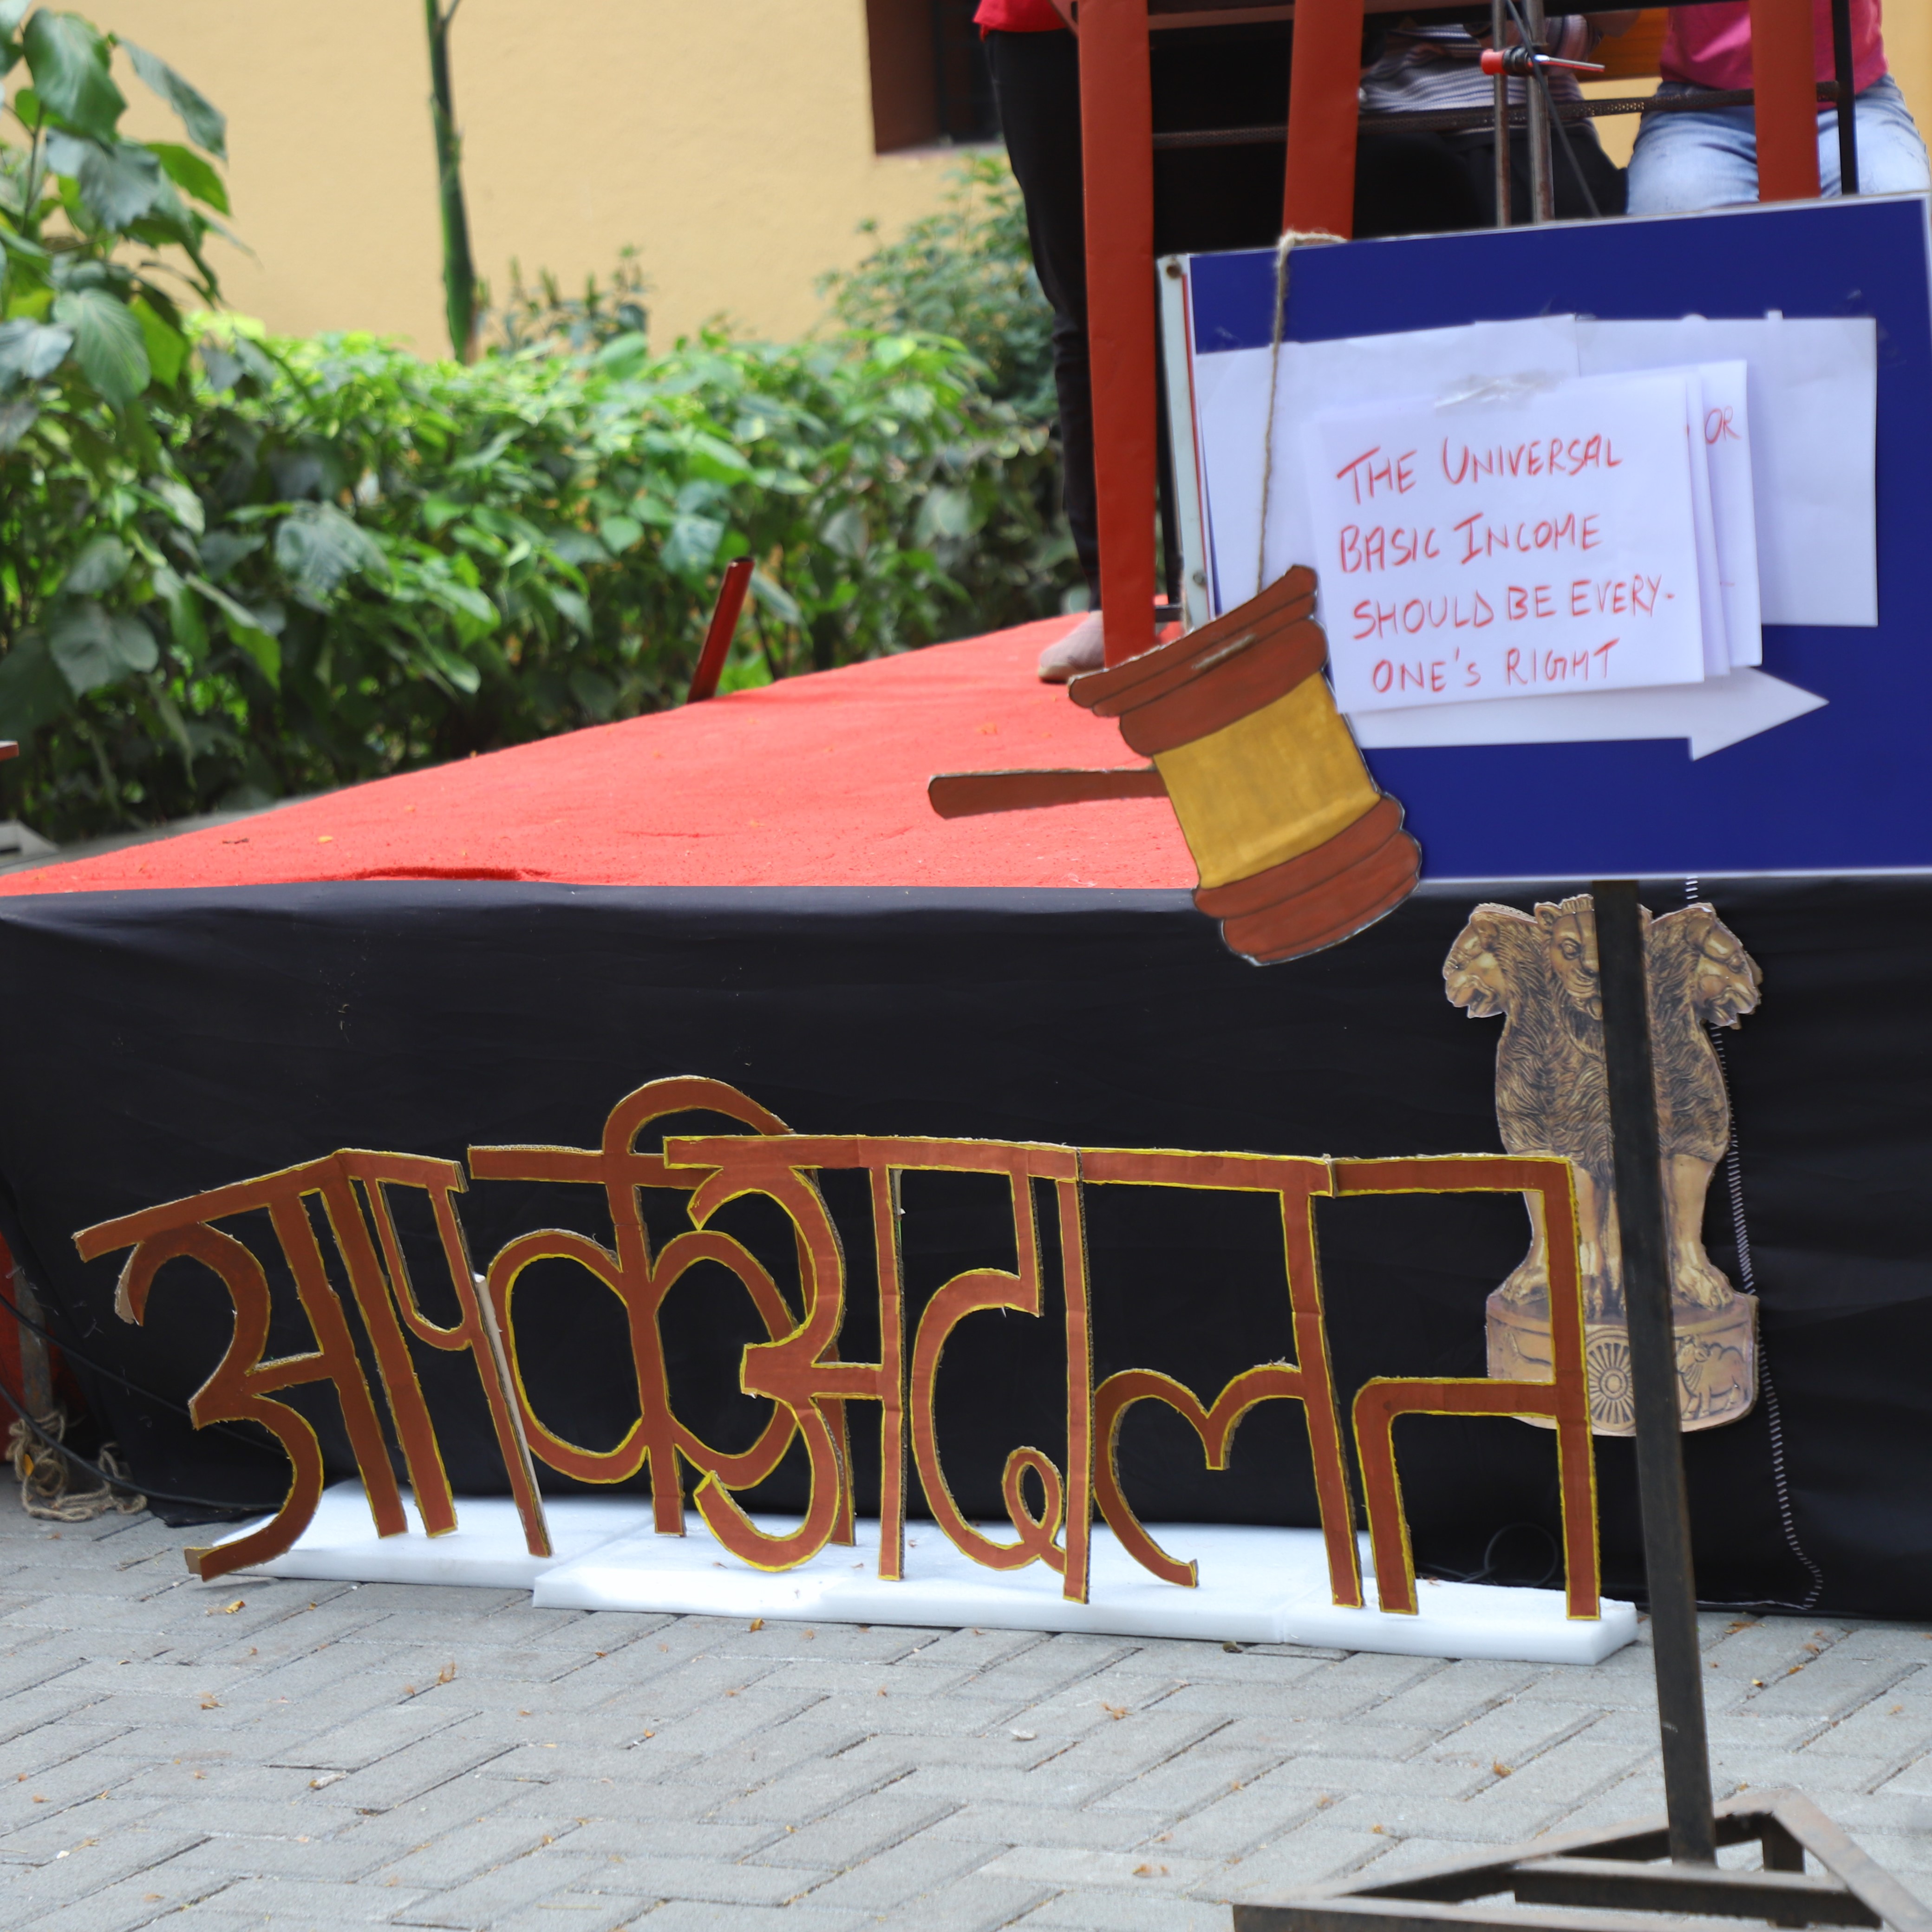 THE UNIVERSAL
BASIC INCOME
SHOULD BE EVERY-
ONE'S RIGHT
OR
आपकी अदालत